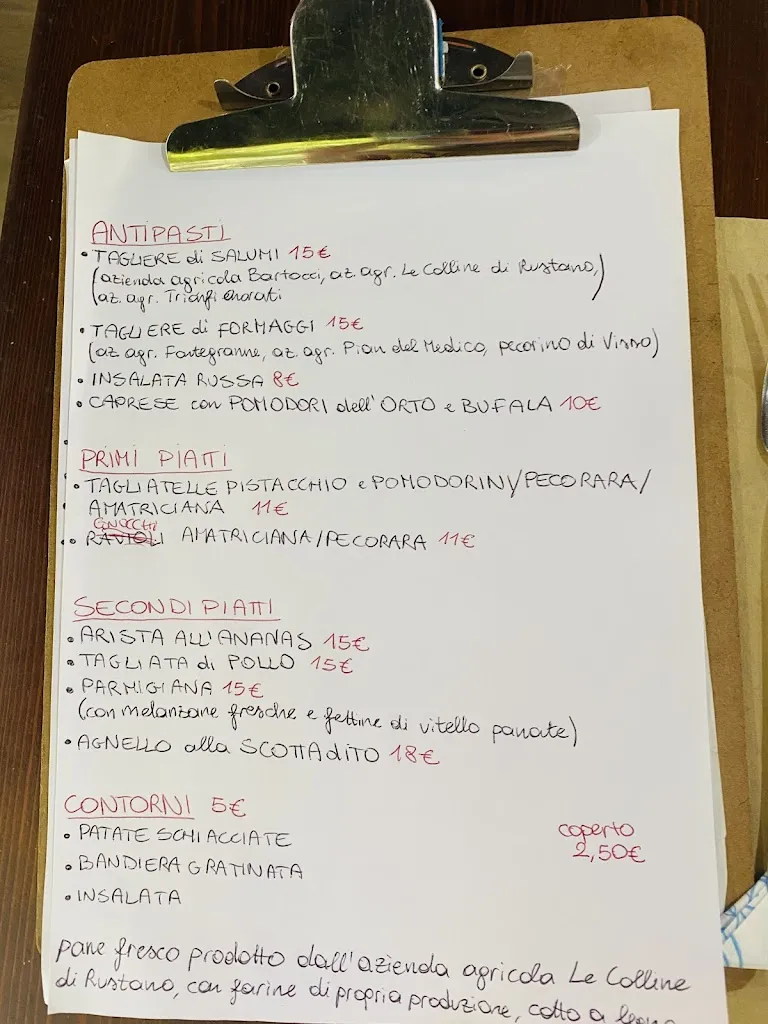 ANTIPASTI
• TAGLIERE di SALUMI 15€
(azienda agricola Bartocci, az. agr. Le Colline di Rustano,
az. agr. Trionfi Honorati)
• TAGLIERE di FORMAGGI 15€
(az. agr. Fontegranne, az. agr. Pian del Medico, pecorino di Visso)
• INSALATA RUSSA 8€
• CAPRESE con POMODORI dell'ORTO e BUFALA 10€
PRIMI PIATTI
• TAGLIATELLE PISTACCHIO e POMODORINI/PECORARA/
AMATRICIANA 11€
GNOCCHI
• RAVIOLI AMATRICIANA/PECORARA 11€
SECONDI PIATTI
• ARISTA ALL'ANANAS 15€
• TAGLIATA di POLLO 15€
• PARMIGIANA 15€
(con melanzane fresche e fettine di vitello panate)
• AGNELLO alla SCOTTADITO 18€
CONTORNI 5€
• PATATE SCHIACCIATE
• BANDIERA GRATINATA
• INSALATA
coperto
2,50€
pane fresco prodotto dall'azienda agricola Le Colline
di Rustano, con farine di propria produzione, cotto a